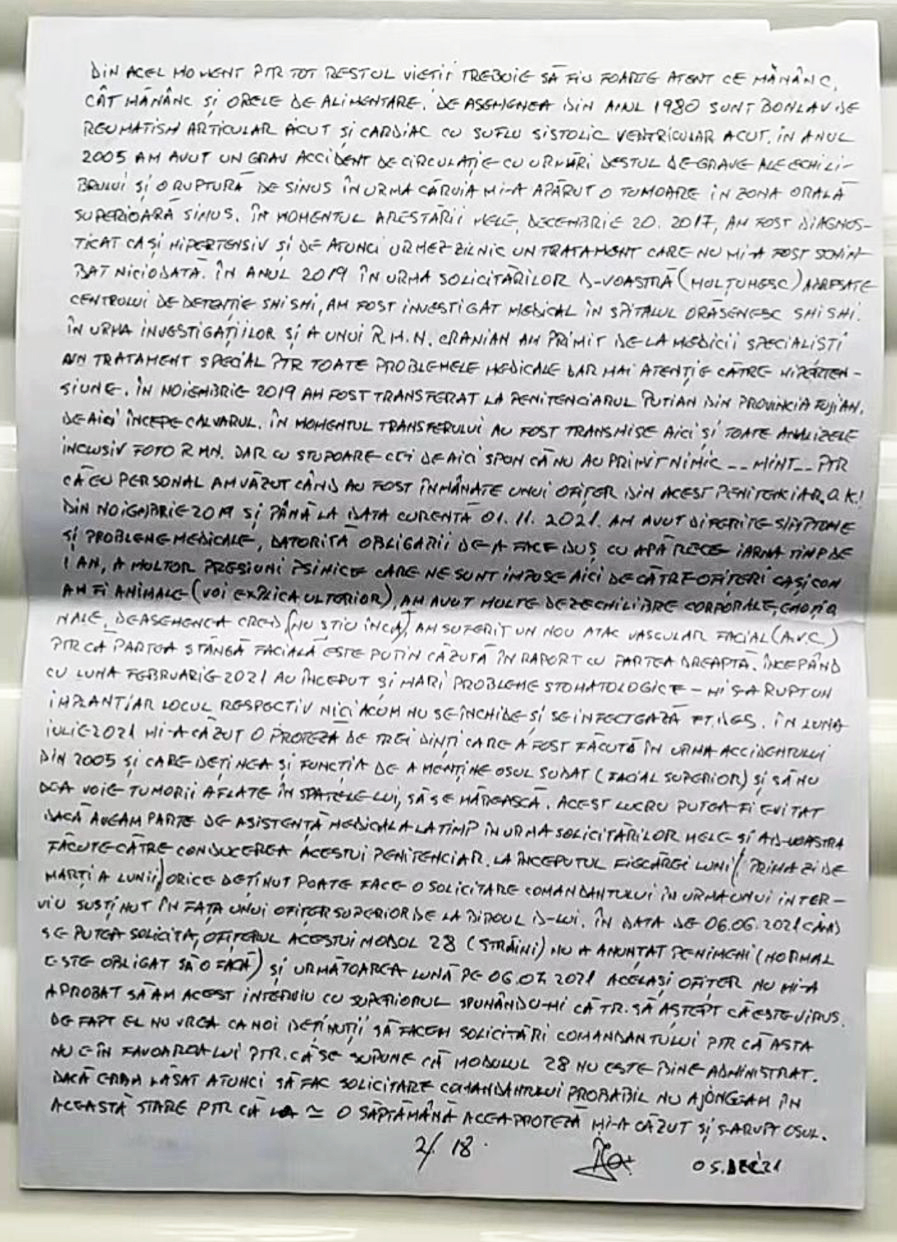 DIN ACEL MOMENT PTR TOT RESTUL VIEȚII TREBUIE SĂ FIU FOARTE ATENT CE MĂNÂNC,
CÂT MĂNÂNC ȘI ORELE DE ALIMENTARE. DE ASEMENEA DIN ANUL 1980 SUNT BONLAV DE
REUMATISM ARTICULAR ACUT ȘI CARDIAC CU SUFLU SISTOLIC VENTRICULAR ACUT. ÎN ANUL
2005 AM AVUT UN GRAV ACCIDENT DE CIRCULAȚIE CU URMĂRI DESTUL DE GRAVE ALE ECHILI-
BRULUI ȘI O RUPTURĂ DE SINUS ÎN URMA CĂRUIA MI-A APĂRUT O TUMOARE ÎN ZONA ORALĂ
SUPERIOARĂ SINUS. ÎN MOMENTUL ARESTĂRII MELE, DECEMBRIE 20. 2017, AM FOST DIAGNOS-
TICAT CA ȘI HIPERTENSIV ȘI DE ATUNCI URMEZ ZILNIC UN TRATAMENT CARE NU MI-A FOST SCHIM-
BAT NICIODATĂ. ÎN ANUL 2019 ÎN URMA SOLICITĂRILOR D-VOASTRĂ (MULȚUMESC) ADRESATE
CENTRULUI DE DETENȚIE SHISHI, AM FOST INVESTIGAT MEDICAL ÎN SPITALUL ORĂȘENESC SHISHI.
ÎN URMA INVESTIGAȚIILOR ȘI A UNUI R.M.N. CRANIAN AM PRIMIT DE LA MEDICII SPECIALIȘTI
UN TRATAMENT SPECIAL PTR TOATE PROBLEMELE MEDICALE DAR MAI ATENȚIE CĂTRE HIPERTEN-
SIUNE. ÎN NOIEMBRIE 2019 AM FOST TRANSFERAT LA PENITENCIARUL PUTIAN DIN PROVINCIA FUJIAN.
DE AICI ÎNCEPE CALVARUL. ÎN MOMENTUL TRANSFERULUI AU FOST TRANSMISE AICI ȘI TOATE ANALIZELE
INCLUSIV FOTO RMN. DAR CU STUPOARE CEI DE AICI SPUN CĂ NU AU PRIMIT NIMIC -- MINT -- PTR
CĂ EU PERSONAL AM VĂZUT CÂND AU FOST ÎNMÂNATE UNUI OFIȚER DIN ACEST PENITENCIAR, O.K!
DIN NOIEMBRIE 2019 ȘI PÂNĂ LA DATA CURENTĂ 01.11.2021. AM AVUT DIFERITE SIMPTOME
ȘI PROBLEME MEDICALE, DATORITĂ OBLIGĂRII DE A FACE DUȘ CU APĂ RECE IARNA TIMP DE
1 AN, A MULTOR PRESIUNI PSIHICE CARE NE SUNT IMPUSE AICI DE CĂTRE OFIȚERI CA ȘI CUM
AM FI ANIMALE (VOI EXPLICA ULTERIOR), AM AVUT MULTE DEZECHILIBRE CORPORALE, EMOȚIO
NALE, DEASEMENEA CRED (NU ȘTIU ÎNCĂ) AM SUFERIT UN NOU ATAC VASCULAR FACIAL (A.V.C.)
PTR CĂ PARTEA STÂNGĂ FACIALĂ ESTE PUȚIN CĂZUTĂ ÎN RAPORT CU PARTEA DREAPTĂ. ÎNCEPÂND
CU LUNA FEBRUARIE 2021 AU ÎNCEPUT ȘI MARI PROBLEME STOMATOLOGICE - MI S-A RUPT UN
IMPLANT IAR LOCUL RESPECTIV NICI ACUM NU SE ÎNCHIDE ȘI SE INFECTEAZĂ FT. DES. ÎN LUNA
IULIE 2021 MI-A CĂZUT O PROTEZĂ DE TREI DINȚI CARE A FOST FĂCUTĂ ÎN URMA ACCIDENTULUI
DIN 2005 ȘI CARE DEȚINEA ȘI FUNCȚIA DE A MENȚINE OSUL SUDAT (FACIAL SUPERIOR) ȘI SĂ NU
DEA VOIE TUMORII AFLATE ÎN SPATELE LUI, SĂ SE MĂREASCĂ. ACEST LUCRU PUTEA FI EVITAT
DACĂ AVEAM PARTE DE ASISTENȚĂ MEDICALĂ LA TIMP ÎN URMA SOLICITĂRILOR MELE ȘI A D-VOASTRĂ
FĂCUTE CĂTRE CONDUCEREA ACESTUI PENITENCIAR. LA ÎNCEPUTUL FIECĂREI LUNI (PRIMA ZI DE
MARȚI A LUNII) ORICE DEȚINUT POATE FACE O SOLICITARE COMANDANTULUI ÎN URMA UNUI INTER-
VIU SUSȚINUT ÎN FAȚA UNUI OFIȚER SUPERIOR DE LA BIROUL D-LUI. ÎN DATA DE 06.06.2021 CÂND
SE PUTEA SOLICITA, OFIȚERUL ACESTUI MODUL 28 (STRĂINI) NU A ANUNȚAT PE NIMENI (NORMAL
ESTE OBLIGAT SĂ O FACĂ) ȘI URMĂTOAREA LUNĂ PE 06.07.2021 ACELAȘI OFIȚER NU MI-A
APROBAT SĂ AM ACEST INTERVIU CU SUPERIORUL SPUNÂNDU-MI CĂ TR. SĂ AȘTEPT CĂ ESTE VIRUS.
DE FAPT EL NU VREA CA NOI DEȚINUȚII SĂ FACEM SOLICITĂRI COMANDANTULUI PTR CĂ ASTA
NU E ÎN FAVOAREA LUI PTR. CĂ SE SUPUNE CĂ MODULUL 28 NU ESTE BINE ADMINISTRAT.
DACĂ ERAM LĂSAT ATUNCI SĂ FAC SOLICITARE COMANDANTULUI PROBABIL NU AJUNGEAM ÎN
ACEASTĂ STARE PTR CĂ ≈ O SĂPTĂMÂNĂ ACEA PROTEZĂ MI-A CĂZUT ȘI S-A RUPT OSUL.
2/18.
05.DEC'21